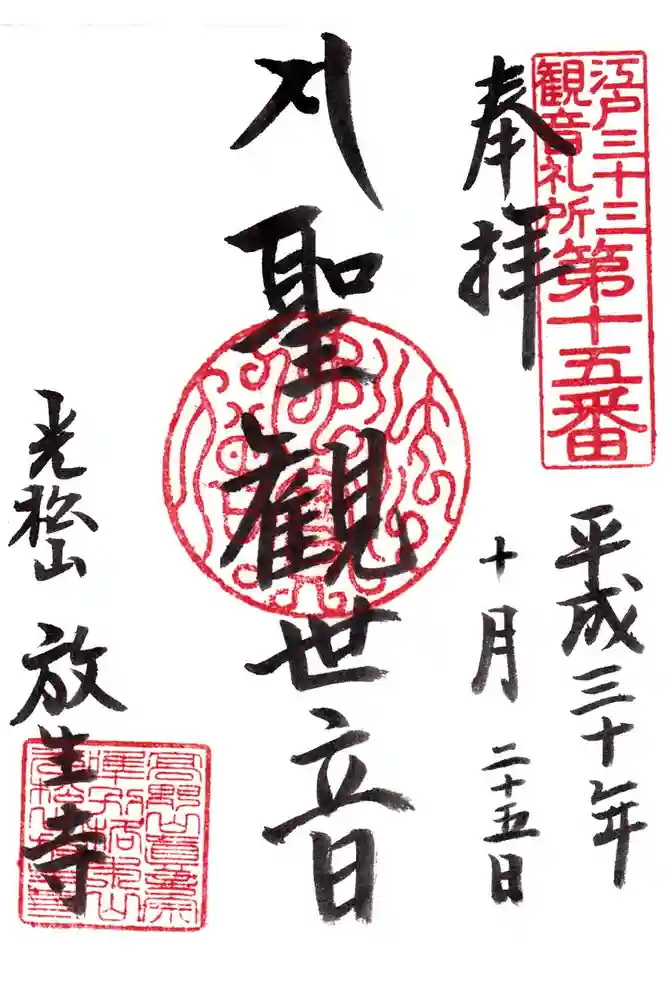 江戸三十三
観音札所第十五番
奉拝
平成三十年
十月二十五日
聖観世音
光松山
放生寺